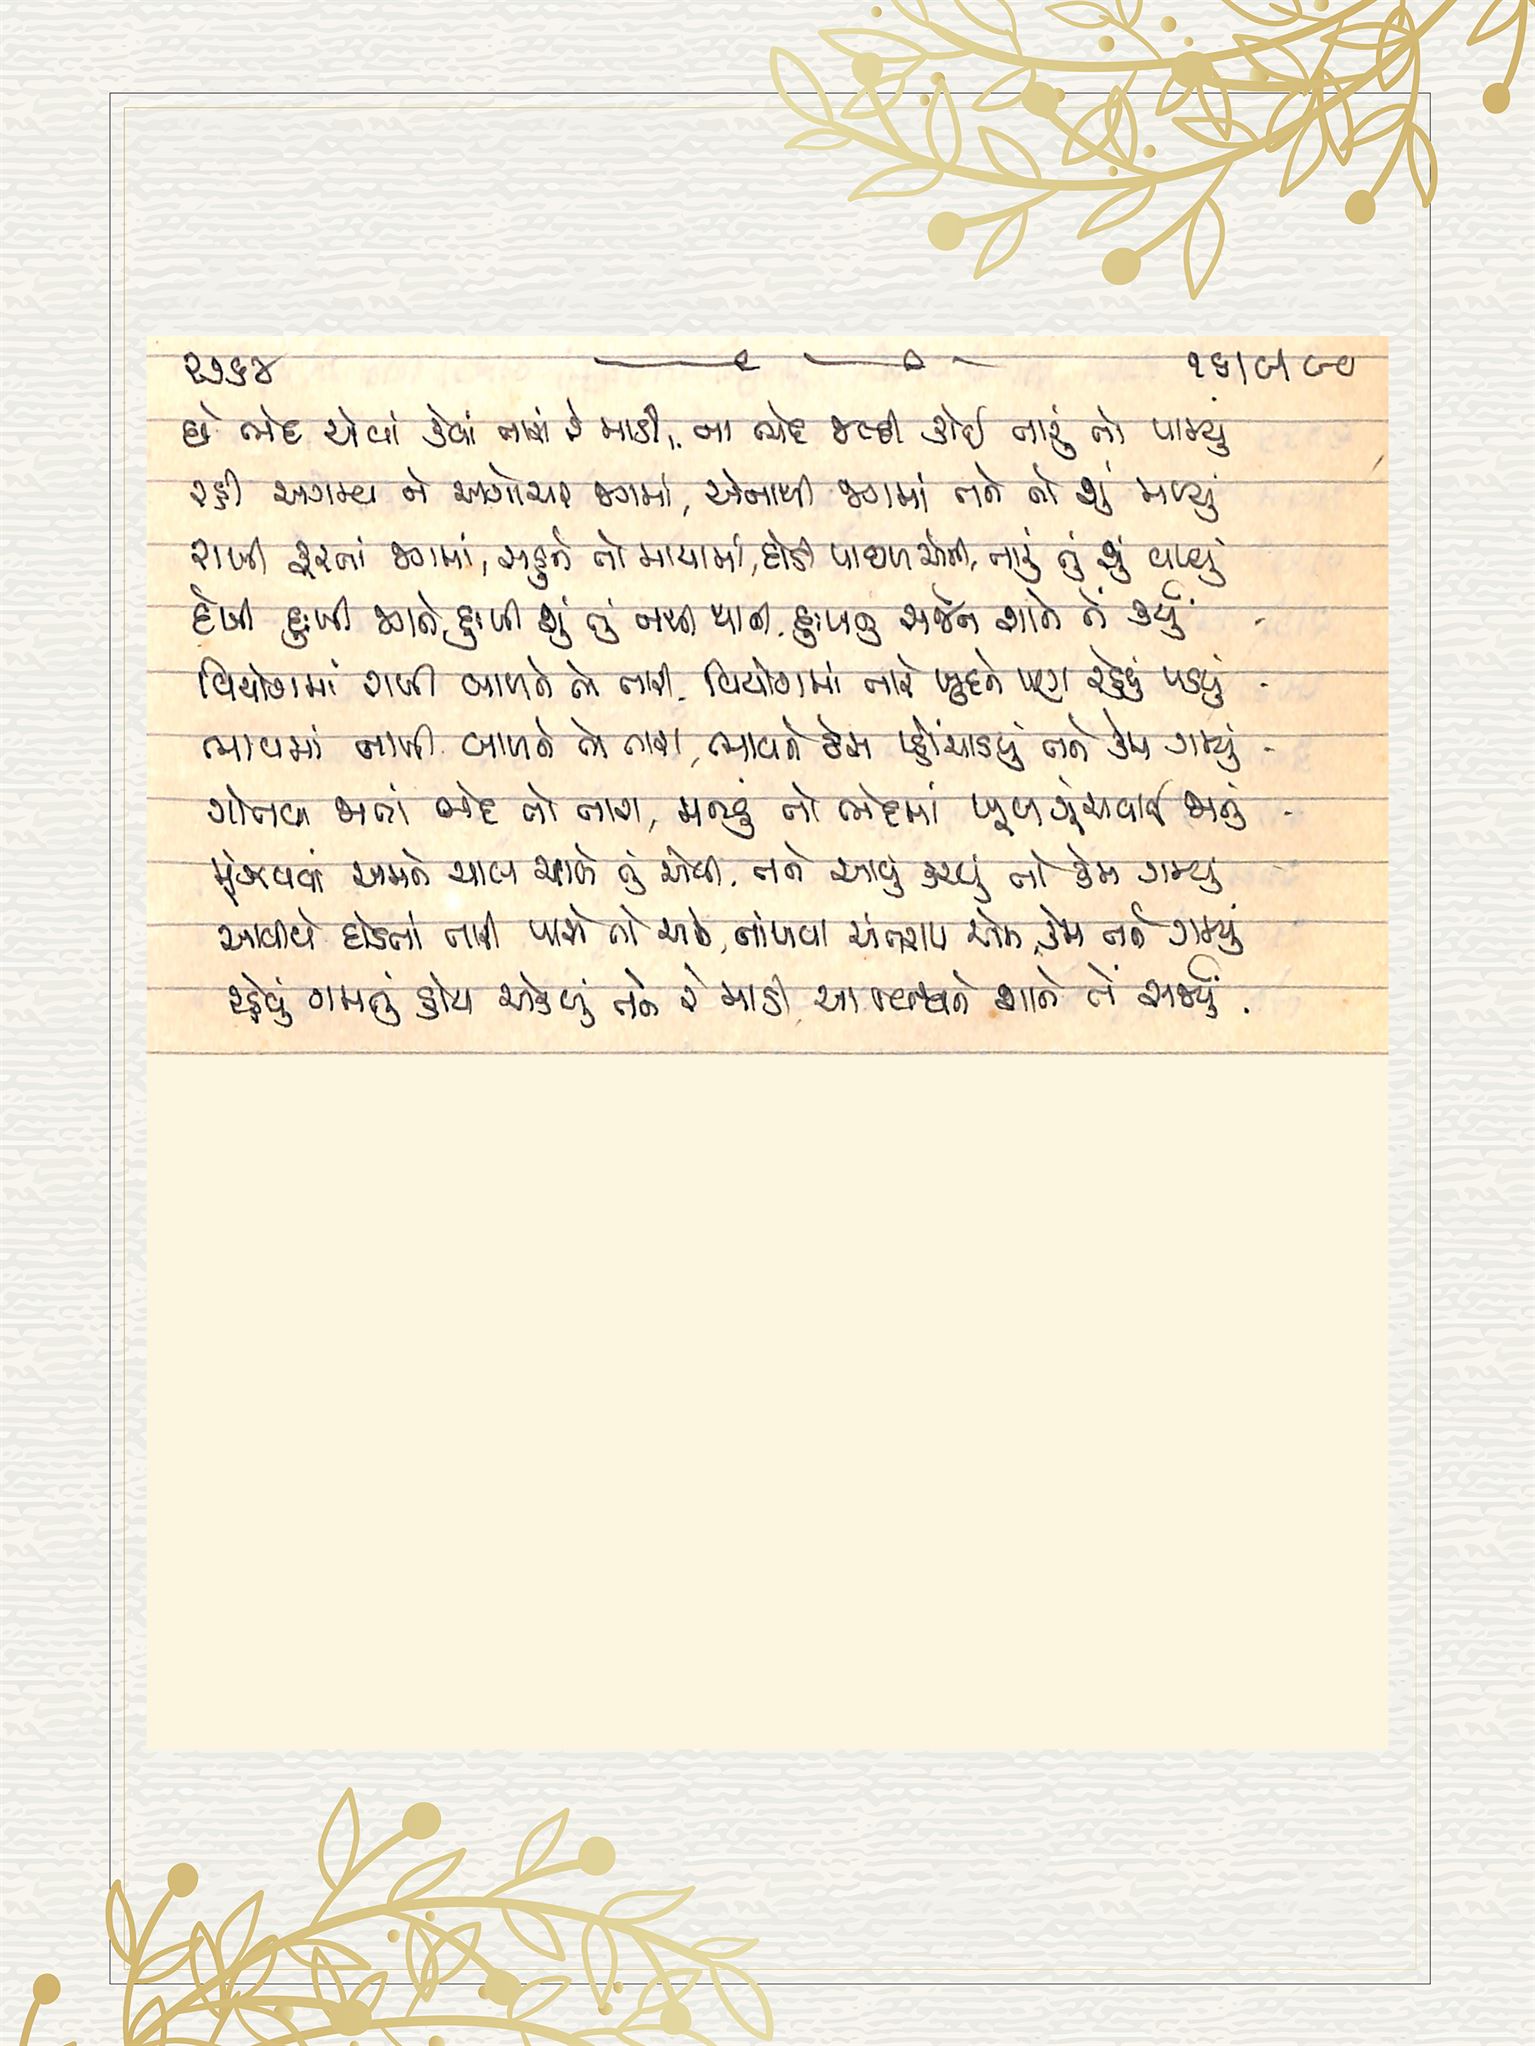 ૨૭૬૪ ૧૬/૯/૯૦
છે ભેદ એવાં કેવાં તારાં રે માડી, ના ભેદ જલ્દી કોઈ તારું તો પામ્યું
રહી અગમ્ય ને અગોચર જગમાં, એનાથી જગમાં તને તો શું મળ્યું
રાખી ફરતાં જગમાં, સહુને તો માયામાં, દોડી પાછળ એની, તારું તું શું વળ્યું
દેખી દુઃખી જગને, દુઃખી શું તું નથી થાતી, દુઃખનું સર્જન શાને તેં કર્યું
વિયોગમાં રાખી બાળને તો તારા, વિયોગમાં તારે ખુદને પણ રહેવું પડ્યું
ભાવમાં નાખી બાળને તો તારા, ભાવને કેમ પ્હોંચાડવું તને કેમ ગમ્યું
ગોતવા જાતાં ભેદ તો તારા, મનડું તો ભેદમાં ખૂબ ગૂંચવાઈ જાતું
મૂંઝવવા અમને ચાલ ચાલે તું એવી, તને આવું કરવું તો કેમ ગમ્યું
આવીયે દોડતાં તારી પાસે તો અમે, નાંખવા અંતરાય એમાં, કેમ તને ગમ્યું
રહેવું ગમતું હોય એકલું તને રે માડી, આ જગતને શાને તેં સર્જ્યું.